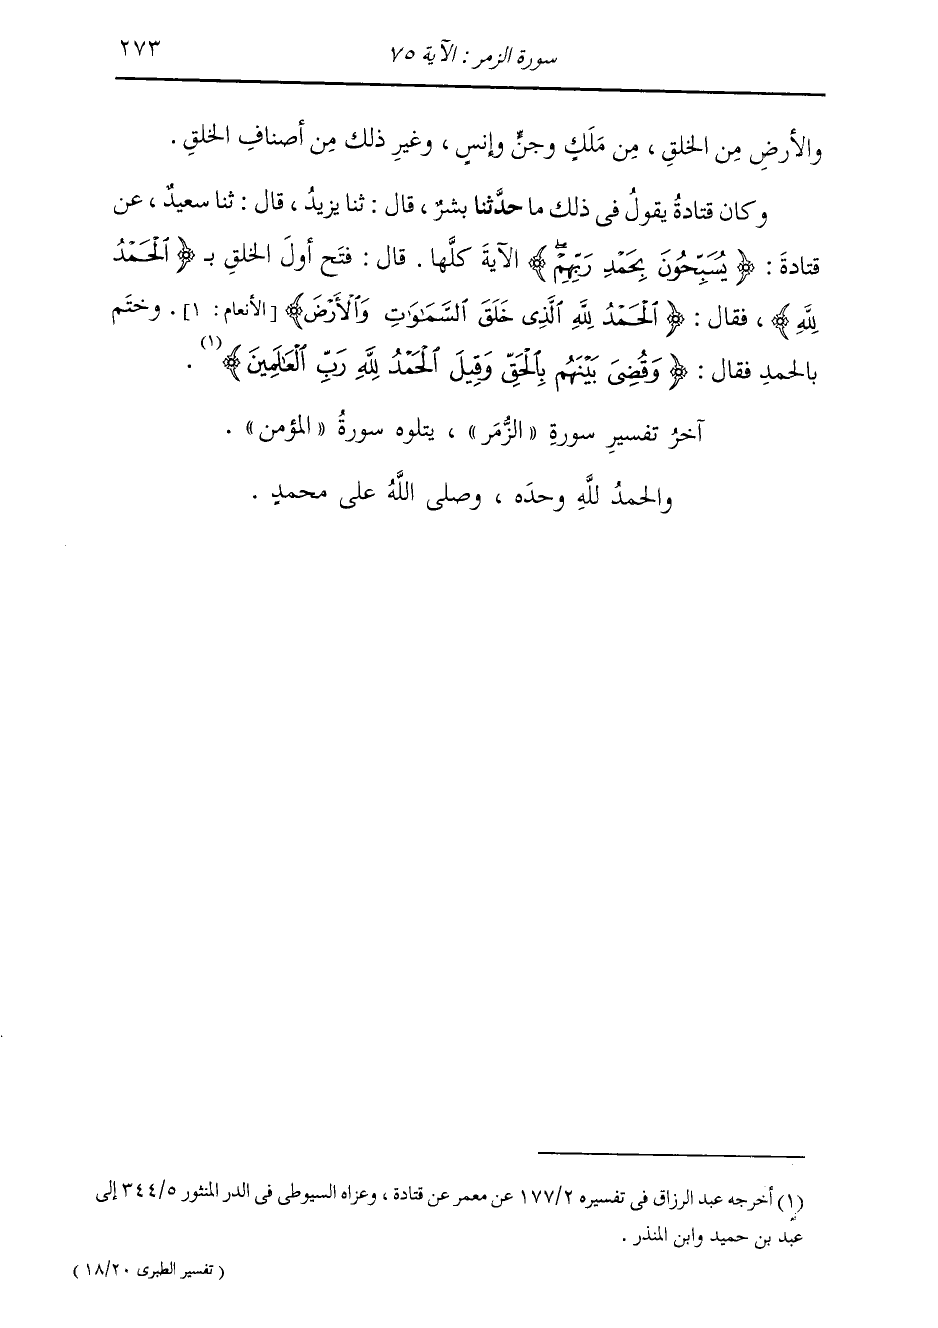 سورة الزمر : الآية ٧٥
٢٧٣
والأرضِ مِن الخلقِ ، مِن مَلَكٍ وجنٍّ وإنسٍ ، وغيرِ ذلك مِن أصنافِ الخلقِ .
وكان قتادةُ يقولُ فى ذلك ما حدَّثنا بشرٌ ، قال : ثنا يزيدُ ، قال : ثنا سعيدٌ ، عن
قتادةَ : ﴿ يُسَبِّحُونَ بِحَمْدِ رَبِّهِمْۖ ﴾ الآيةَ كلَّها . قال : فتَح أولَ الخلقِ بـ ﴿ ٱلْحَمْدُ
لِلَّهِ ﴾ ، فقال : ﴿ ٱلْحَمْدُ لِلَّهِ ٱلَّذِى خَلَقَ ٱلسَّمَٰوَٰتِ وَٱلْأَرْضَ ﴾ [ الأنعام : ١ ] . وختَم
بالحمدِ فقال : ﴿ وَقُضِىَ بَيْنَهُم بِٱلْحَقِّ وَقِيلَ ٱلْحَمْدُ لِلَّهِ رَبِّ ٱلْعَٰلَمِينَ ﴾(١) .
آخرُ تفسيرِ سورةِ « الزُّمَر » ، يتلوه سورةُ « المؤمن » .
والحمدُ للَّهِ وحدَه ، وصلى اللَّهُ على محمدٍ .
(١) أخرجه عبد الرزاق فى تفسيره ١٧٧/٢ عن معمر عن قتادة ، وعزاه السيوطى فى الدر المنثور ٣٤٤/٥ إلى
عبد بن حميد وابن المنذر .
( تفسير الطبرى ١٨/٢٠ )